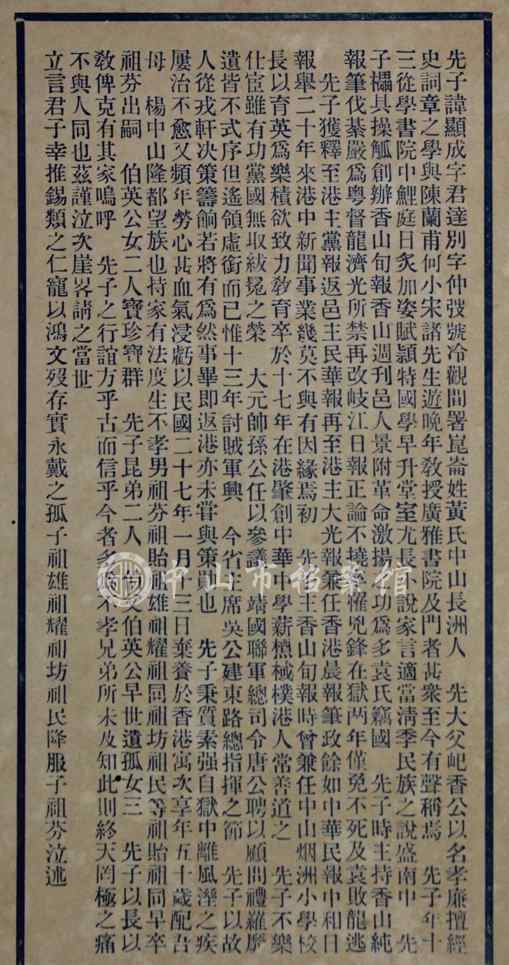 先子諱顯成字君達別字仲弢號冷觀間署崑崙姓黃氏中山長洲人　先大父屺香公以名孝廉擅經
史詞章之學與陳蘭甫何小宋諸先生遊晚年教授廣雅書院及門者甚衆至今有聲稱焉　先子年十
三從學書院中鯉庭日炙加姿賦頴特國學早升堂室尤長小說家言適當淸季民族之說盛南中　先
子櫑具操觚創辦香山旬報香山週刊邑人景附革命激揚之功爲多袁氏竊國　先子時主持香山純
報筆伐綦嚴爲粵督龍濟光所禁再改岐江日報正論不撓遂罹兇鋒在獄两年僅免不死及袁敗龍逃
先子獲釋至港主黨報返邑主民華報再至港主大光報兼任香港晨報筆政餘如中華民報中和日
報舉二十年來港中新聞事業幾莫不與有因緣焉初　先子主香山旬報時曾兼任中山烟洲小學校
長以育英爲樂積欲致力敎育卒於十七年在港肇創中華中學薪樵棫樸港人常善道之　先子不樂
仕宦雖有功黨國無取紱冕之榮　大元帥孫公任以參議　靖國聯軍總司令唐公聘以顧問禮羅屢
遺皆不式序但遙領虛銜而已惟十三年討賊軍興　今省主席吳公建東路總指揮之節　先子以故
人從戎軒决策籌餉若將有爲然事畢即返港亦未嘗與策勳也　先子秉質素强自獄中離風溼之疾
屢治不愈又頻年勞心甚血氣浸虧以民國二十七年一月十三日棄養於香港寓次享年五十歲配吾
母　楊中山隆都望族也持家有法度生不孝男祖芬祖貽祖雄祖耀祖同祖坊祖民等祖貽祖同早卒
祖芬出嗣　伯英公女二人寶珍寶群　先子昆弟二人　尙爻伯英公早世遺孤女三　先子以長以
敎俾克有其家嗚呼　先子之行誼方乎古而信乎今者多爲不孝兄弟所未及知此則終天罔極之痛
不與人同也茲謹泣次崖畧請之當世
立言君子幸推錫類之仁寵以鴻文歿存實永戴之孤子祖雄祖耀祖坊祖民降服子祖芬泣述
中山市档案館